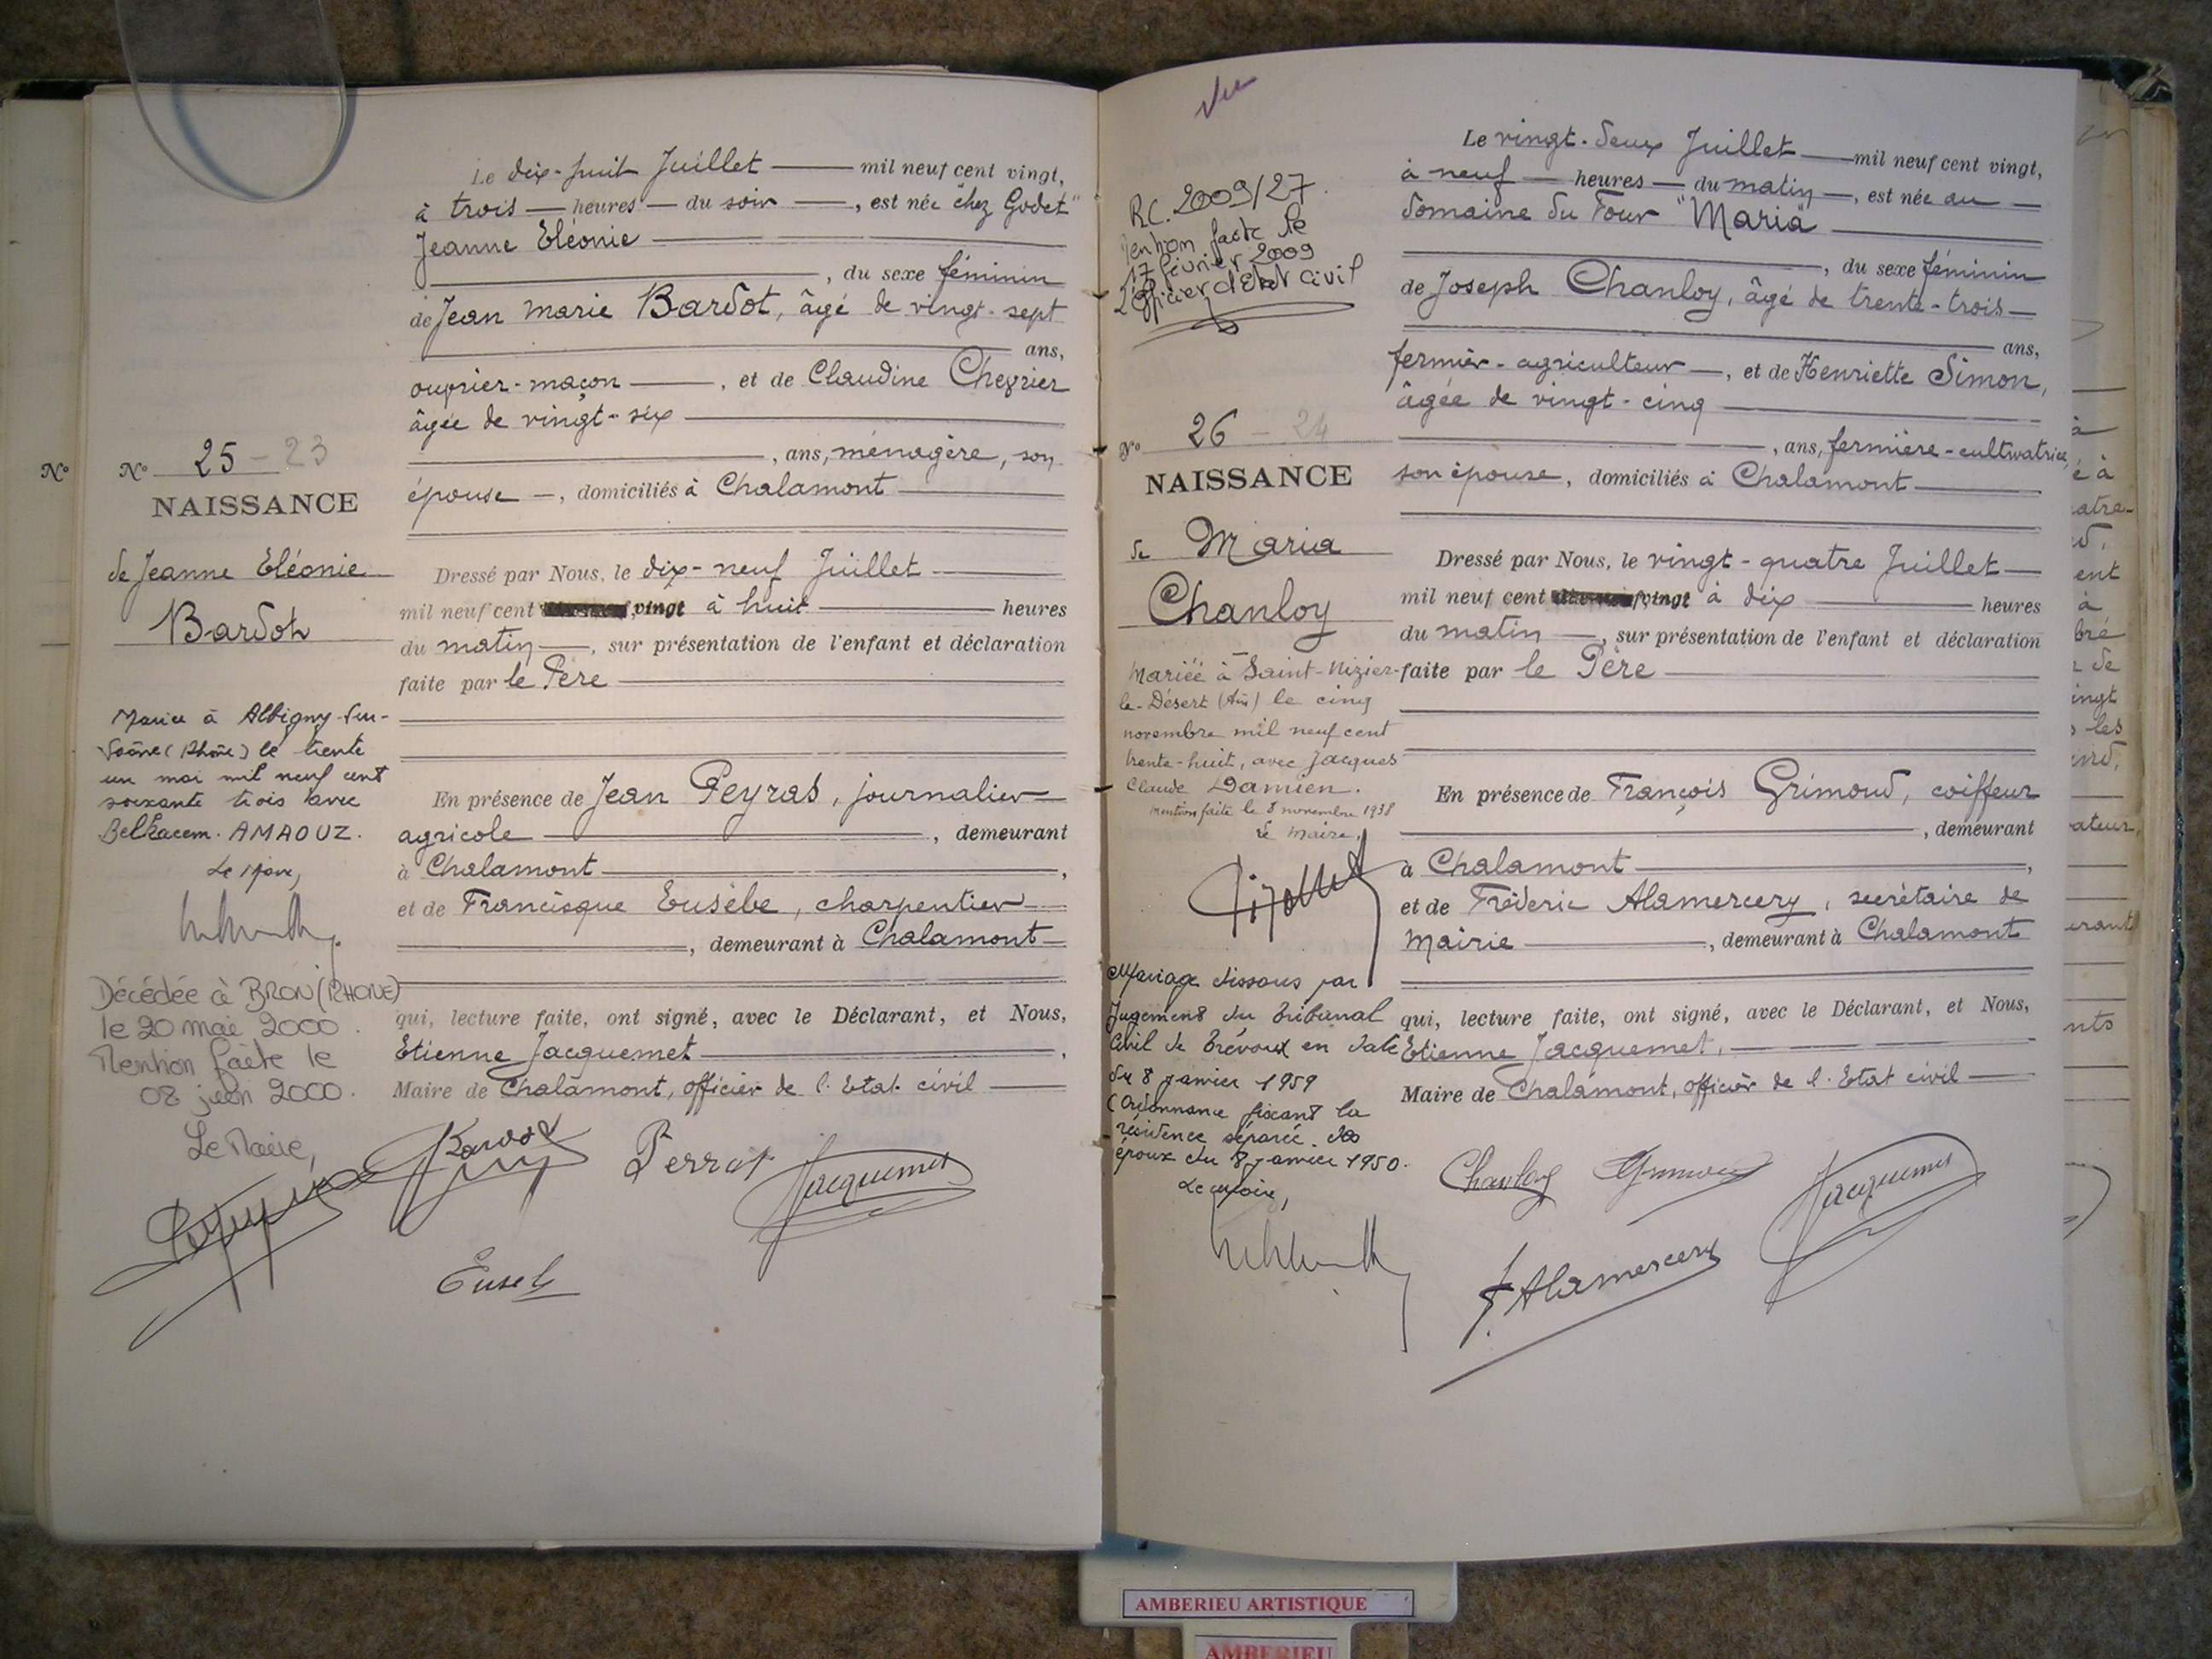 Le dix-huit Juillet — mil neuf cent vingt,
à trois — heures — du soir —, est née "chez Godet"
Jeanne Eléonie
, du sexe féminin
de Jean Marie Bardot, âgé de vingt-sept
ans,
ouvrier-maçon —, et de Claudine Chevrier
âgée de vingt-six
, ans, ménagère, son
épouse —, domiciliés à Chalamont
Dressé par Nous, le dix-neuf Juillet
mil neuf cent vingt à huit — heures
du matin —, sur présentation de l'enfant et déclaration
faite par le Père
En présence de Jean Peyras, journalier
agricole —, demeurant
à Chalamont —,
et de Francisque Eusèbe, charpentier
, demeurant à Chalamont
qui, lecture faite, ont signé, avec le Déclarant, et Nous,
Etienne Jacquemet —,
Maire de Chalamont, officier de l'Etat civil
Perrat
Jacquemet
N°
N° 25 - 23
NAISSANCE
de Jeanne Eléonie
Bardot
Mariée à Albigny-sur-
Saône (Rhône) le trente
un mai mil neuf cent
soixante trois avec
Belkacem AMAOUZ.
Le Maire,
Décédée à BRON (RHONE)
le 20 mai 2000.
Mention faite le
08 juin 2000.
Le Maire,
Vu
RC. 2009/27.
Mention faite le
17 février 2009
L'Officier d'Etat Civil
N° 26 - 24
NAISSANCE
de Maria
Chanloy
Mariée à Saint-Nizier-
le-Désert (Ain) le cinq
novembre mil neuf cent
trente-huit, avec Jacques
Claude Damien.
Mention faite le 8 novembre 1938
Le Maire,
Mariage dissous par
Jugement du Tribunal
Civil de Trévoux en date
du 8 janvier 1959
(Ordonnance fixant la
résidence séparée des
époux du 8 janvier 1950.
Le Maire,
Le vingt-deux Juillet — mil neuf cent vingt,
à neuf — heures — du matin —, est née au —
domaine du Four "Maria"
, du sexe féminin
de Joseph Chanloy, âgé de trente-trois
ans,
fermier-agriculteur —, et de Henriette Simon,
âgée de vingt-cinq
, ans, fermière-cultivatrice,
son épouse, domiciliés à Chalamont
Dressé par Nous, le vingt-quatre Juillet
mil neuf cent vingt à dix — heures
du matin —, sur présentation de l'enfant et déclaration
faite par le Père
En présence de François Grimoud, coiffeur
, demeurant
à Chalamont —,
et de Fréderic Alamercery, secrétaire de
Mairie —, demeurant à Chalamont
qui, lecture faite, ont signé, avec le Déclarant, et Nous,
Etienne Jacquemet,
Maire de Chalamont, officier de l'Etat civil
Chanloy
Jacquemet
F. Alamercery
AMBERIEU ARTISTIQUE
AMBERIEU